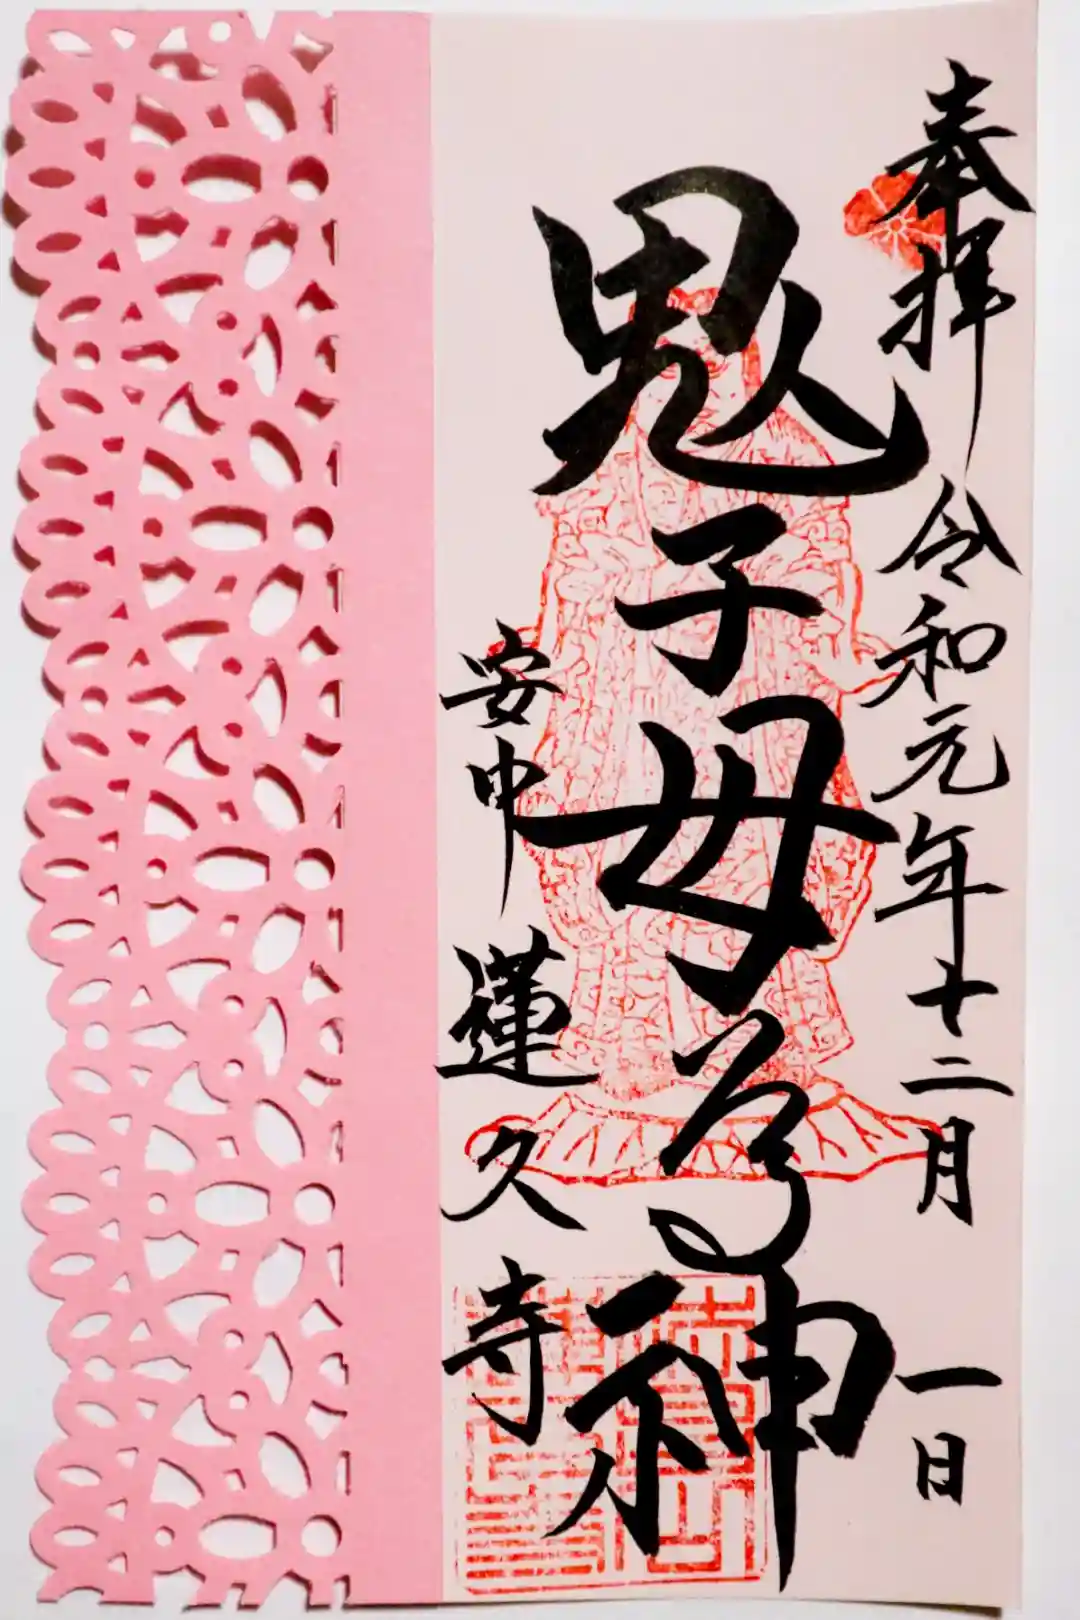 奉拝
令和元年十二月一日
鬼子母尊神
安中
蓮久寺